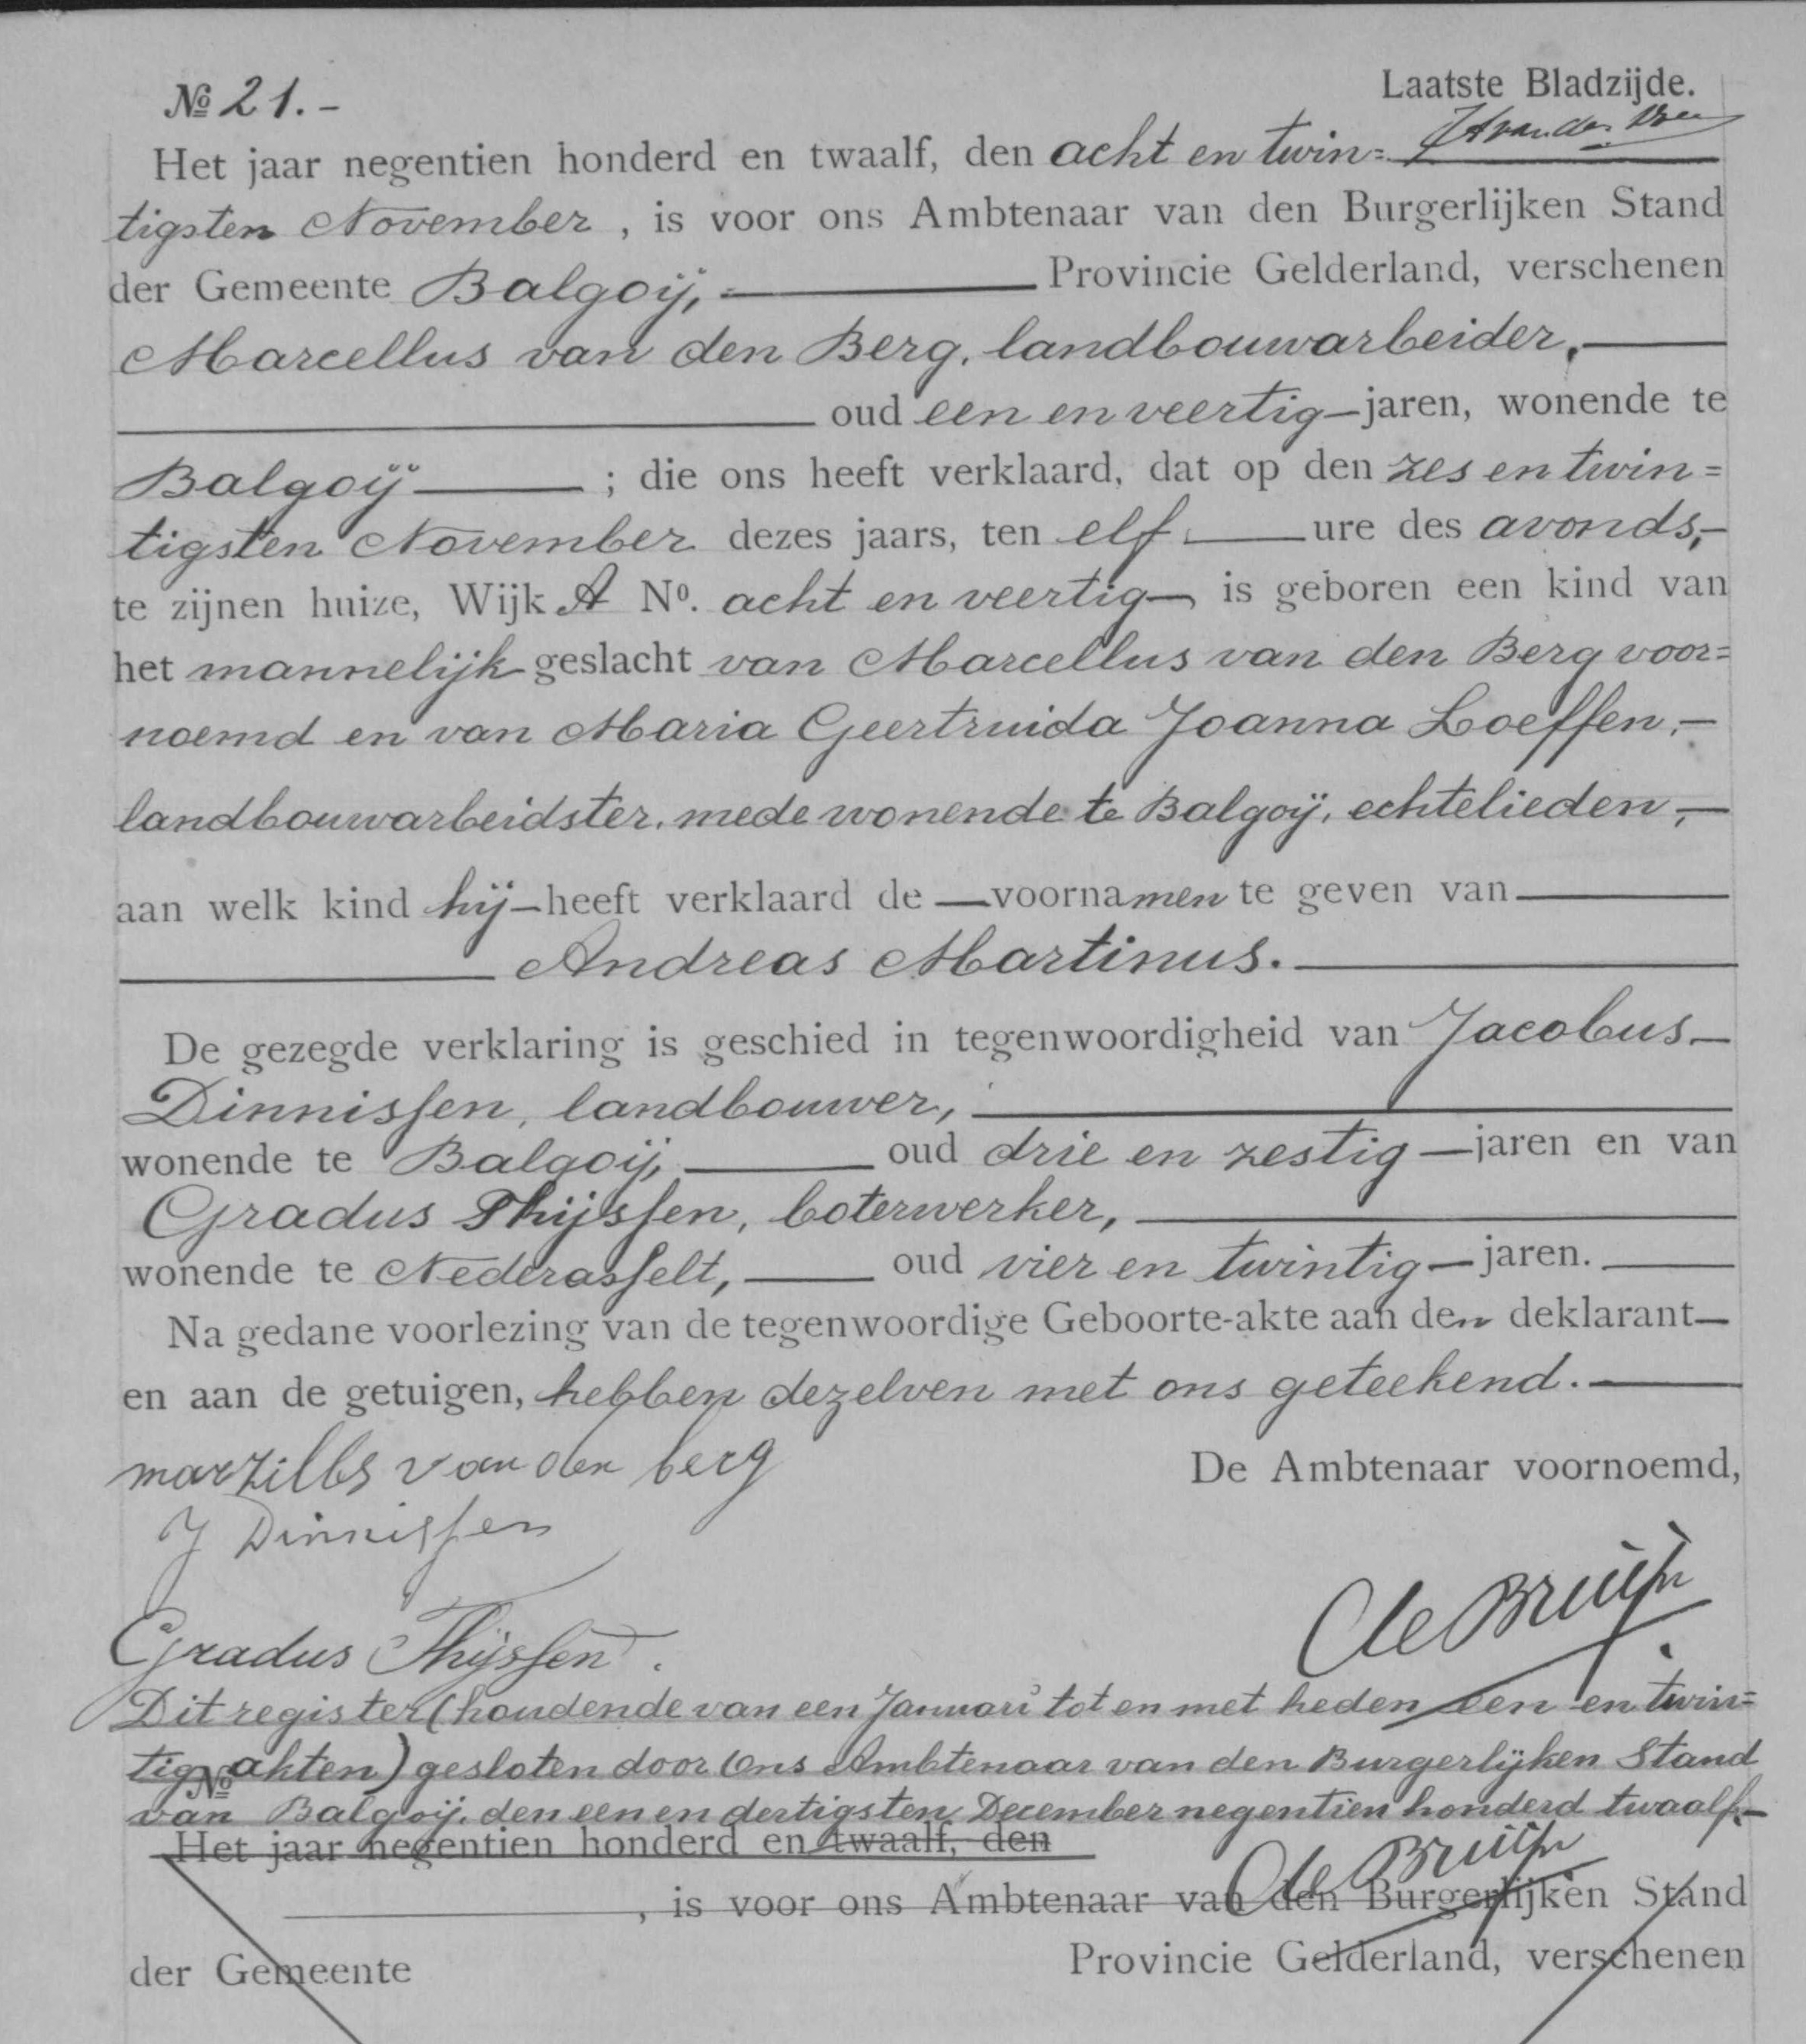 Laatste Bladzijde.
№ 21.-
Het jaar negentien honderd en twaalf, den acht en twin=
tigsten November, is voor ons Ambtenaar van den Burgerlijken Stand
der Gemeente Balgoij, Provincie Gelderland, verschenen
Marcellus van den Berg, landbouwarbeider,
oud een en veertig jaren, wonende te
Balgoij ; die ons heeft verklaard, dat op den zes en twin=
tigsten November dezes jaars, ten elf ure des avonds,
te zijnen huize, Wijk A No. acht en veertig is geboren een kind van
het mannelijk geslacht van Marcellus van den Berg voor=
noemd en van Maria Geertruida Joanna Loeffen,
landbouwarbeidster, mede wonende te Balgoij, echtelieden,
aan welk kind hij heeft verklaard de voornamen te geven van
Andreas Martinus.
De gezegde verklaring is geschied in tegenwoordigheid van Jacobus
Dinnissen, landbouwer,
wonende te Balgoij, oud drie en zestig jaren en van
Gradus Thijssen, boterwerker,
wonende te Nederasselt, oud vier en twintig jaren.
Na gedane voorlezing van de tegenwoordige Geboorte-akte aan den deklarant
en aan de getuigen, hebben dezelven met ons geteekend.
van den berg
De Ambtenaar voornoemd,
J Dinnissen
de Bruijn
Gradus Thijssen.
Dit register (houdende van een Januari tot en met heden een en twin=
tig akten) gesloten door Ons Ambtenaar van den Burgerlijken Stand
№
van Balgoij, den een en dertigsten December negentien honderd twaalf.
Het jaar negentien honderd en twaalf, den
de Bruijn
, is voor ons Ambtenaar van den Burgerlijken Stand
der Gemeente Provincie Gelderland, verschenen